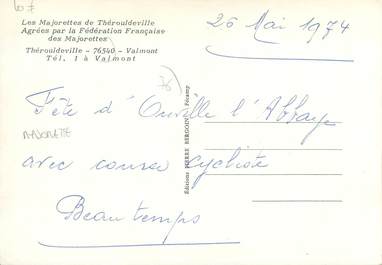 Les Majorettes de Thérouldeville
Agrées par la Fédération Française
des Majorettes
Thérouldeville - 76540 - Valmont
Tél. 1 à Valmont
26 Mai 1974
76
Fête d'Ouville l'Abbaye
MAJORETTE
avec course cycliste
Beau temps
Editions PIERRE BERGOIN Fécamp